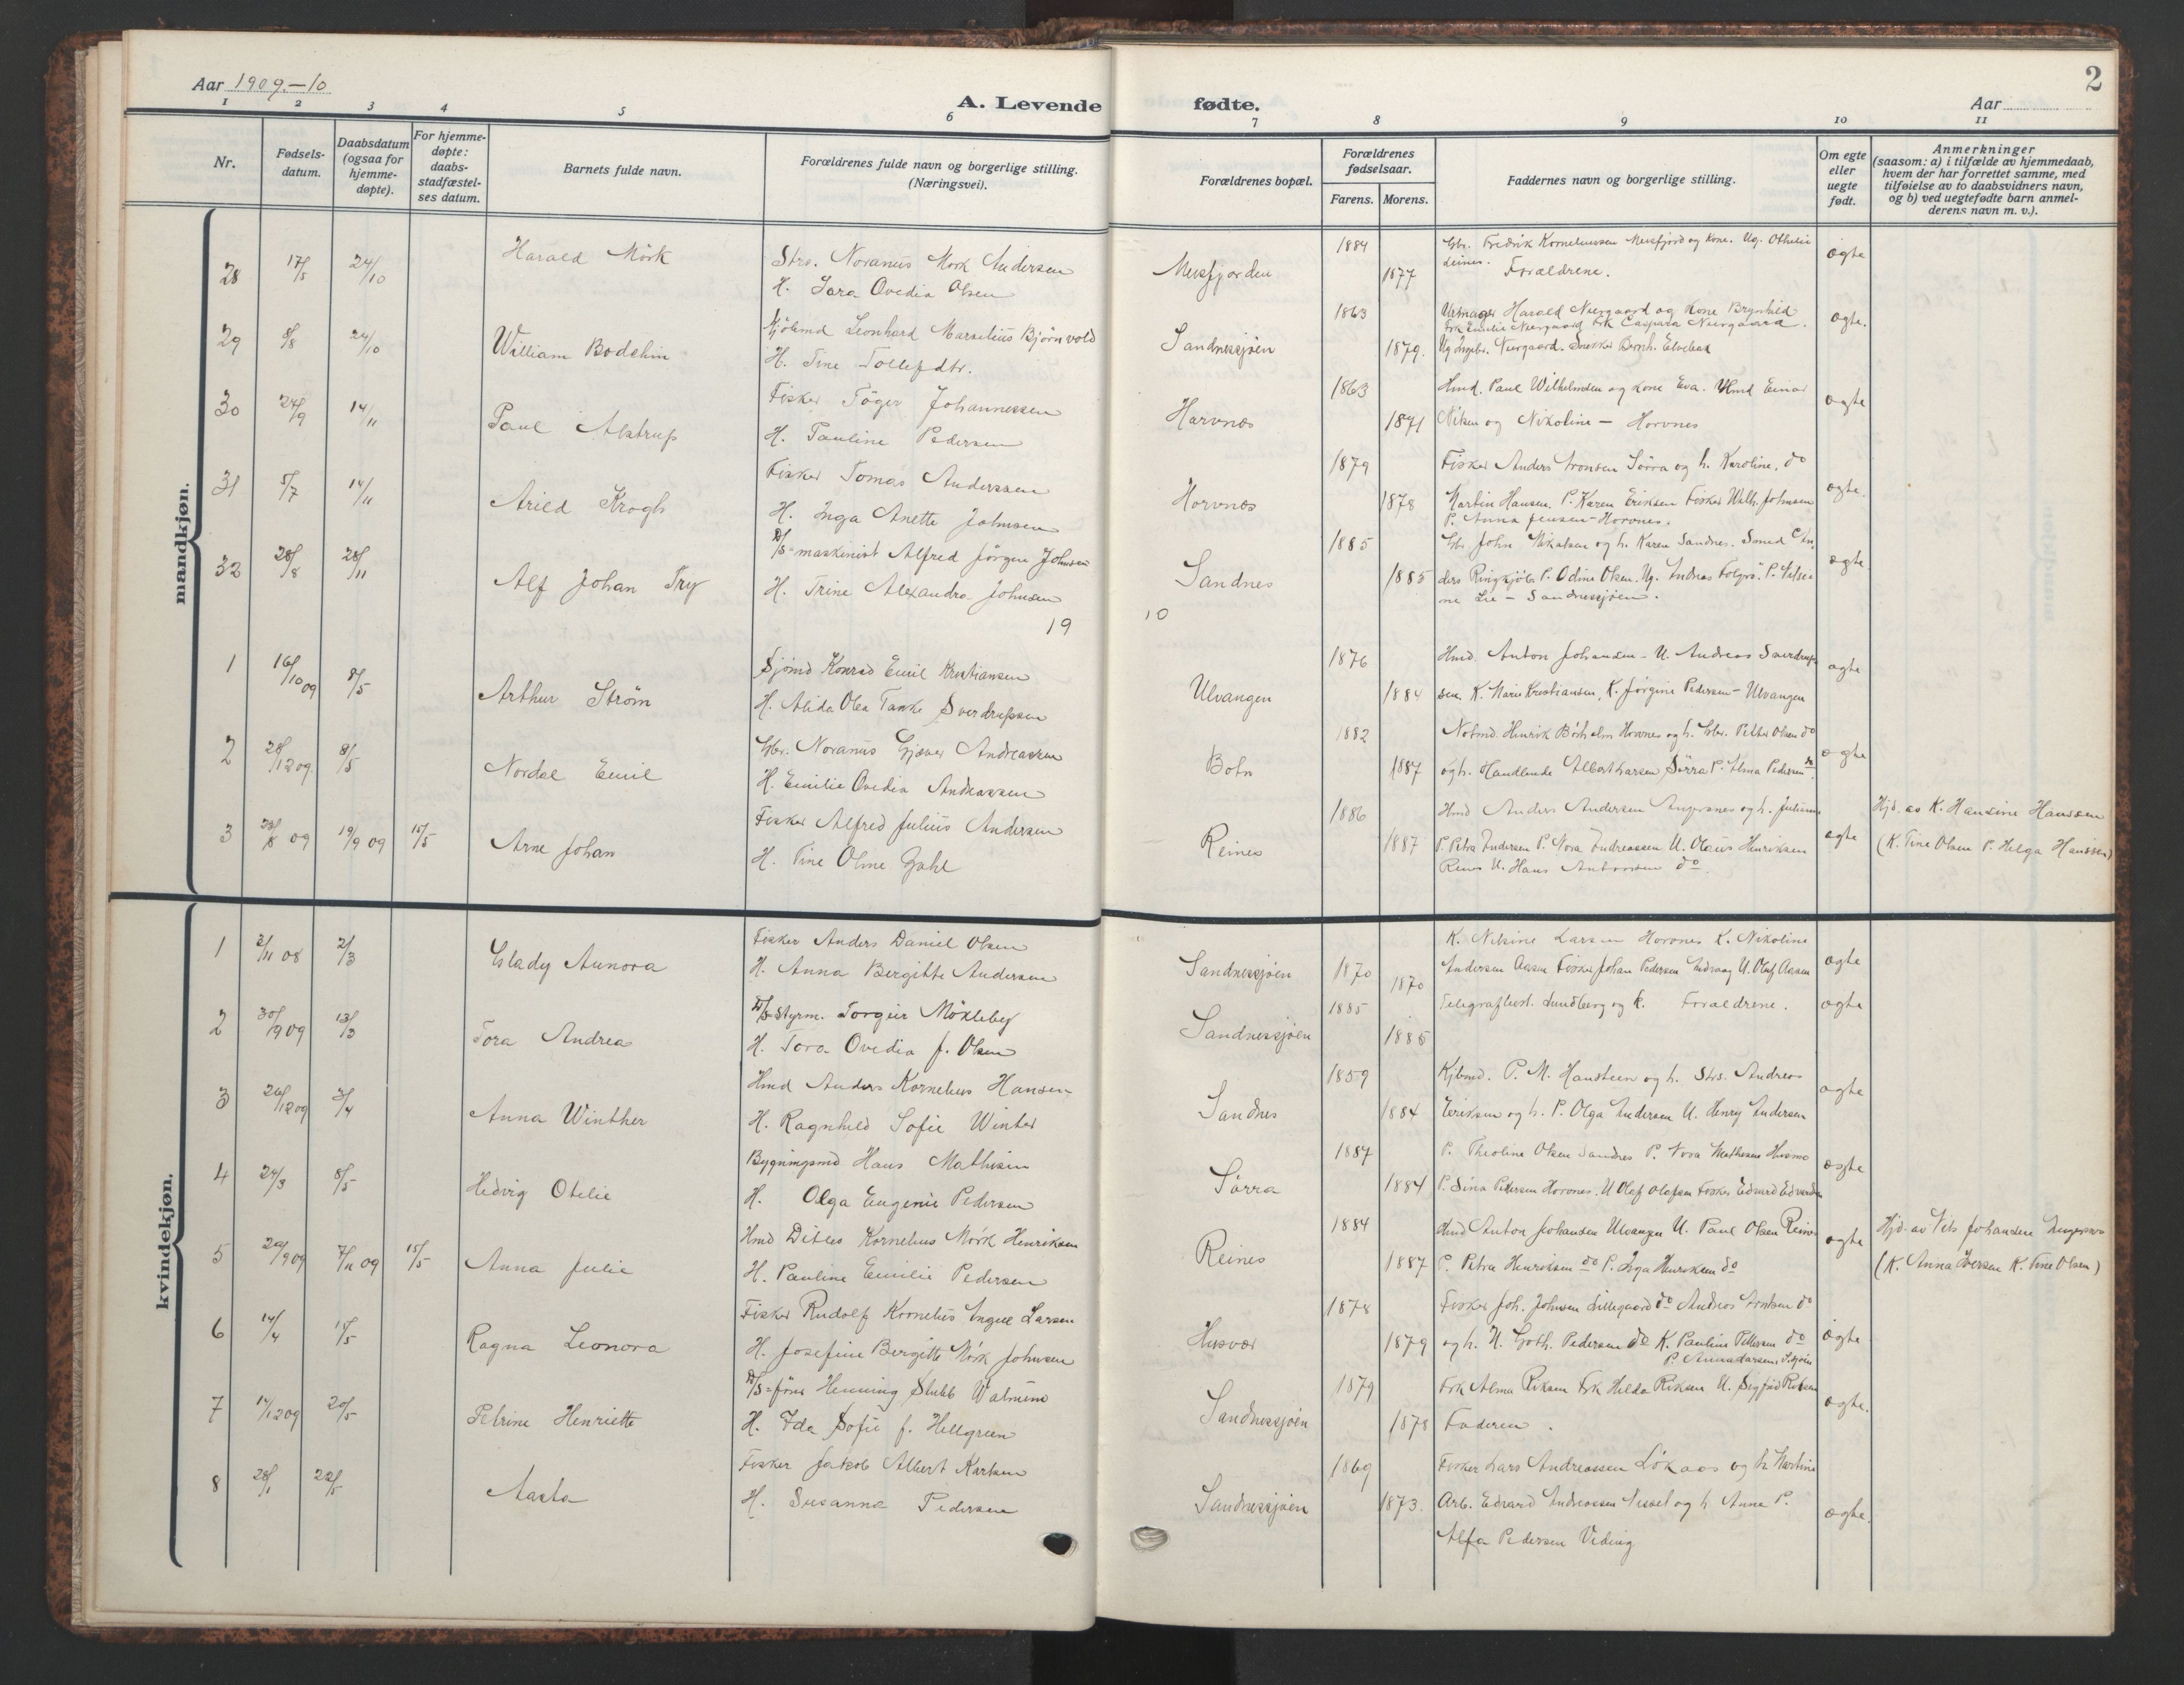 Aar 1909.-10
A. Levende
fødte.
Aar
2
1 2 3 4 5 6 7 8 9 10 11
Nr.
Fødsels-
datum.
Daabsdatum
(ogsaa for
hjemme-
døpte).
For hjemme-
døpte:
daabs-
stadfæstel-
ses datum.
Barnets fulde navn.
Forældrenes fulde navn og borgerlige stilling.
(Næringsvei).
Forældrenes bopæl.
Forældrenes
fødselsaar.
Farens. Morens.
Faddernes navn og borgerlige stilling.
Om egte
eller
uegte
født.
Anmerkninger
(saasom: a) i tilfælde av hjemmedaab,
hvem der har forrettet samme, med
tilføielse av to daabsvidners navn,
og b) ved uegtefødte barn anmel-
derens navn m. v.).
mandkjøn.
28 17/5 24/10 Harald Mörk
Strs. Noranus Mork Andersen
H. Sara Ovedia Olsen
Meisfjorden 1884 1877
Gbr. Fredrik Kornelussen Meisfjord og kone. Ug. Othelie
Leines. Forældrene.
ægte
29 8/8 24/10 William Bodelin
Kjöbmd Leonhard Marselius Björnvold
H. Tine Tollefdtr.
Sandnessjöen 1863 1879.
Urmager Harald Neergaard og kone Brynhild
Frk Emilie Neergaard Frk Caspara Neergaard.
Ug Ingebr. Neergaard. Snekker Bernh. Elvebak
ægte.
30 24/9 14/11 Paul Alstrup
Fisker Töger Johannessen
H. Pauline Pedersen
Harvnes 1863 1871
Hmd. Paul Wilhelmsen og kone Eva. Hmd Einar
Nilsen og Nikoline - Horvnes
ægte
31 5/7 14/11 Arild Krogh
Fisker Tomas Anderssen
H. Inga Anette Johnsen
Horvnes 1879 1878
Fisker Anders Aronsen Sörra og h. Karoline, do
Martin Hansen. P. Karen Eriksen Fisker Wilh. Johnsen
P. Anna Jensen-Horvnes.
ægte.
32 28/8 28/11 Alf Johan Fry
D/S=maskinist Alfred Jörgen Johnsen
H. Trine Alexandra Johnsen
Sandnes 1885 1885
Gbr John Mikalsen og h. Karen Sandnes. Smed An-
ders Ringkjöb P. Odine Olsen. Ug. Andreas P. Nilsi-
ne Lie - Sandnessjöen.
ægte
19 10
1 16/10 09 8/5 Arthur Ström
Sjömd Konrad Emil Kristiansen
H. Alida Olea Tanke Sverdrupsen
Ulvangen 1876 1884
Hmd. Anton Johansen - U. Andreas Sverdrup-
sen. K. Marie Kristiansen, K. Jörgine Pedersen - Ulvangen
ægte
2 28/12 09. 8/5 Nordal Emil
Gbr. Noranus Gjæver Andreassen
H. Emilie Ovedia Andreassen
Botn 1882 1887
Notmd. Henrik Horvnes og h. Gbr. Petter Olsen do
og h. Handlende Albert Larsen Sörra P. Alma Pedersen do.
ægte
3 23/8 09 19/9 09 15/5 Arne Johan
Fisker Alfred Julius Andersen
H. Tine Oline Zahl
Reines 1886 1887
Hmd Anders Andersen Angersnes og h. Julianne
P. Petra Andersen P. Nora Andreassen U. Olaus Henriksen
Reines U. Hans Antonsen do.
ægte
Hjd. av K. Hansine Hanssen
(K. Tine Olsen P. Helga Hanssen)
kvindekjøn.
1 3/11 08 2/3 Glady Aunora
Fisker Anders Daniel Olsen
H. Anna Bergitte Andersen
Sandnessjöen 1870 1870
K. Nilsine Larsen Horvnes K. Nikoline
Andersen Aasen Fisker Johan Pedersen U. Olaf Aasen
ægte
2 30/9 09 13/3 Tora Andrea
D/S=Styrm. Torgeir Mökleby
H. Tora Ovedia f. Olsen
Sandnessjöen 1885 1885
Telegrafbest. Lundberg og k. Forældrene.
ægte
3 26/12 09 3/4 Anna Winther
Hmd Anders Kornelius Hansen
H. Ragnhild Sofie Winter
Sandnes 1859 1884
Kjbmd. P. M. Hansteen og h. Strs. Andreas
Eriksen og h. P. Olga Andersen U. Henry Andersen
ægte
4 24/3 8/5 Hedvig Otelie
Bygningsmd Hans Mathisen
H. Olga Eugenie Pedersen
Sörra 1887 1884
P. Theoline Olsen Sandnes P. Nora Mathisen Husmo
P. Sina Pedersen Horvnes. U Olaf Olafsen Fisker Edvard Edvardsen
ægte
5 20/9 09 7/11 09 15/5 Anna Julie
Hmd Ditlev Kornelius Mörk Henriksen
H. Pauline Emilie Pedersen
Reines 1884 1887
Hmd Anton Johansen Ulvangen U. Paul Olsen Reines
P. Petra Henriksen do P. Inga Henriksen do
ægte
Hjd. av Nils Johansen
(K. Anna Iversen K. Tine Olsen)
6 14/4 15/5 Ragna Leonora
Fisker Rudolf Kornelius Ingul Larsen
H. Josefine Bergitte Mörk Johnsen
Husvær 1878 1879
Fisker Joh. Johnsen Lillegaard do Andreas do
og h. U. Goth. Pedersen do K. Pauline Pettersen do
P. Anna Larsen, S.sjöen
ægte
7 14/12 09 20/5 Petrine Henriette
D/S=förer Henning Stubb Walnum
H. Ida Sofie f. Hellgreen
Sandnessjöen 1879 1878
Frk Alma Riksen Frk Helda Riksen U. Sigfrid Riksen
Faderen.
ægte.
8 28/1 22/5 Aasta
Fisker Jakob Albert Karlsen
H. Susanna Pedersen
Sandnessjöen 1869 1873.
Fisker Lars Andreassen Lökaas og h. Martine
Arb. Edvard Andreassen Nissel og h Anna P.
Alfa Pedersen Viding
ægte.